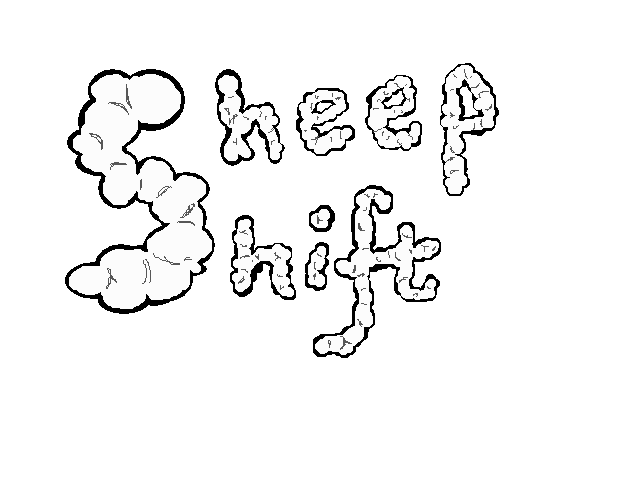 Sheep
Shift